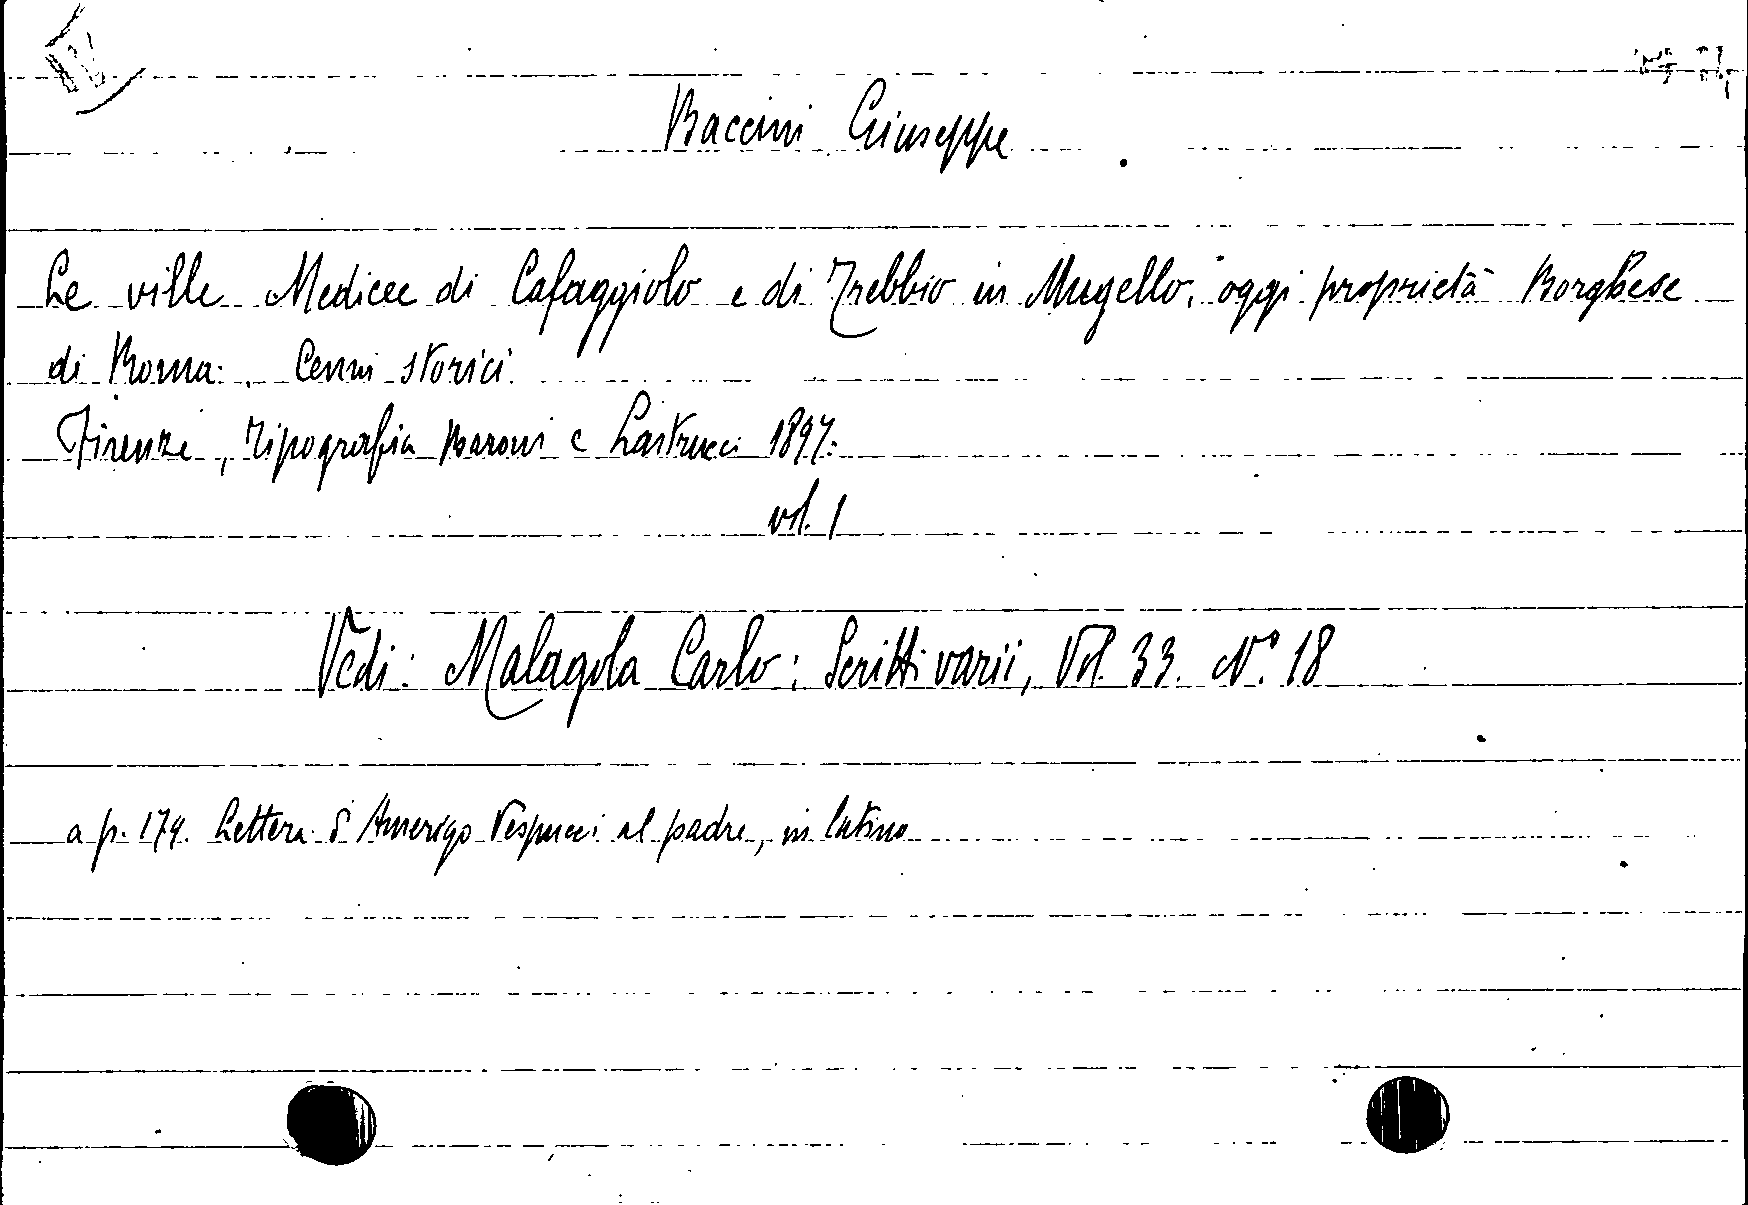 Baccini Giuseppe
Le ville Medicee di Cafaggiolo e di Trebbio in Mugello, oggi proprietà Borghese
di Roma. Cenni storici.
Firenze, Tipografia Baroni e Lastrucci 1897.
vol. 1
Vedi: Malagola Carlo: Scritti varii, Vol. 33. N.° 18
a p. 174. Lettera d'Amerigo Vespucci al padre, in latino